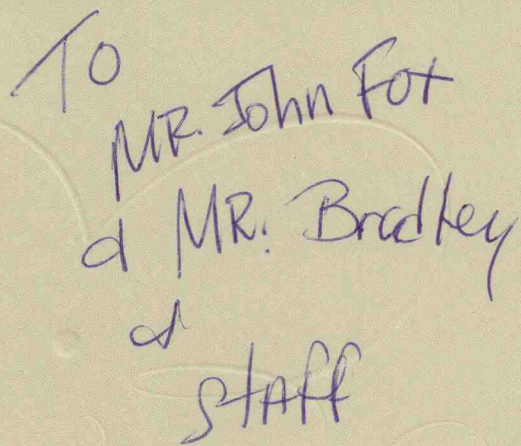 To
MR. John Fox
& MR. Bradley
&
Staff